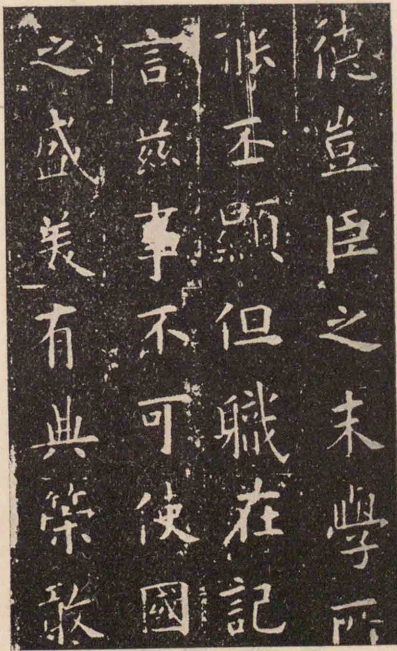 德豈臣之末學所
能丕顯但職在記
言茲事不可使國
之盛美有典築敢